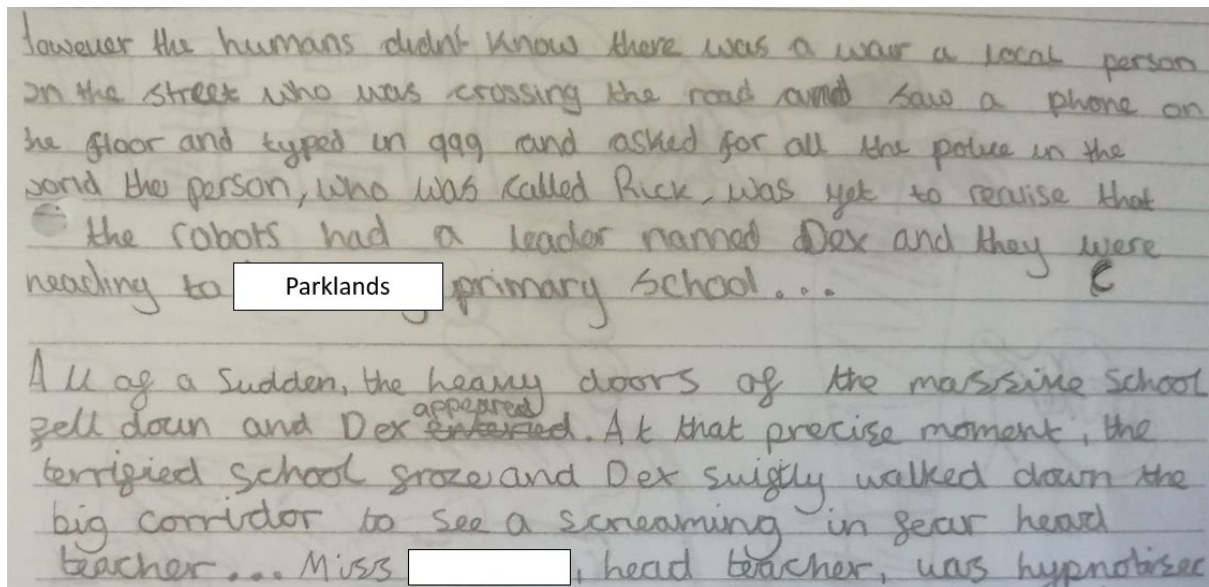 However the humans didnt know there was a war a local person
on the street who was crossing the road and saw a phone on
the floor and typed in 999 and asked for all the police in the
world the person, who was called Rick, was yet to realise that
the robots had a leader named Dex and they were
heading to Parklands primary school...
All of a sudden, the heavy doors of the massive school
appeared
fell down and Dex entered. At that precise moment, the
terrified school froze and Dex swiftly walked down the
big corridor to see a screaming in fear head
teacher... Miss , head teacher, was hypnotised